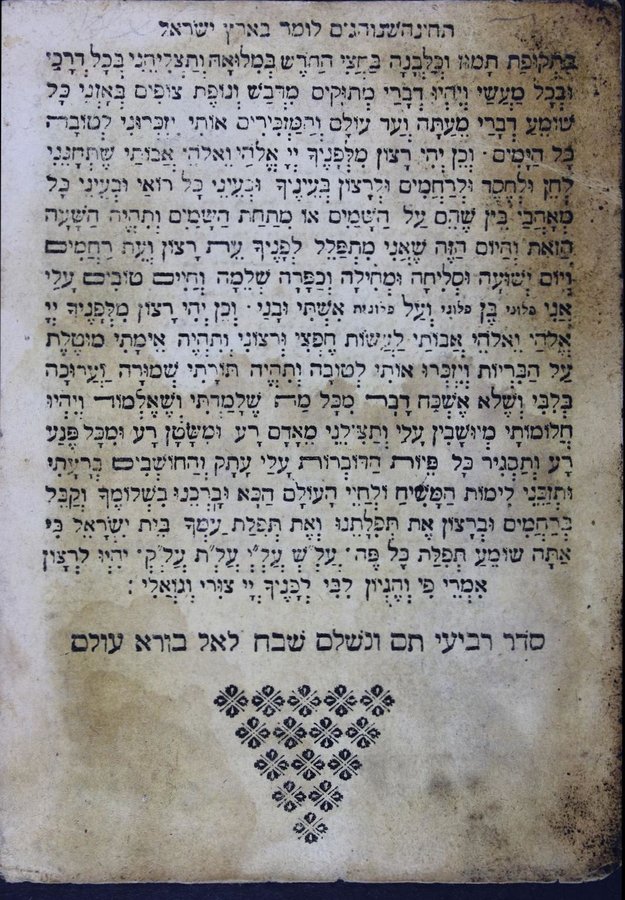 תחינה שנוהגים לומר בארץ ישראל
בִּתְקוּפַת תַּמּוּז וְכַלְּבָנָה בַּחֲצִי הַחֹדֶשׁ בְּמִלוּאָהּ וְתַצְלִיחֵנִי בְּכָל דְּרָכַי
וּבְכָל מַעֲשַׂי וְיִהְיוּ דְּבָרַי מְתוּקִים מִדְּבַשׁ וְנוֹפֶת צוּפִים בְּאָזְנֵי כָּל
שׁוֹמֵעַ דְּבָרַי מֵעַתָּה וְעַד עוֹלָם וְהַמַּזְכִּירִים אוֹתִי יִזְכְּרוּנִי לְטוֹבָה
כָּל הַיָּמִים· וְכֵן יְהִי רָצוֹן מִלְּפָנֶיךָ יְיָ אֱלֹהַי וֵאלֹהֵי אֲבוֹתַי שֶׁתְּחָנֵּנִי
לְחֵן וּלְחֶסֶד וּלְרַחֲמִים וּלְרָצוֹן בְּעֵינֶיךָ וּבְעֵינֵי כָּל רוֹאַי וּבְעֵינֵי כָּל
מְאָהֲבַי בֵּין שֶׁהֵם עַל הַשָּׁמַיִם אוֹ מִתַּחַת הַשָּׁמַיִם וּתְהֵיה הַשָּׁעָה
הַזֹּאת וְהַיּוֹם הַזֶּה שֶׁאֲנִי מִתְפַּלֵּל לְפָנֶיךָ עֵת רָצוֹן וְעֵת רַחֲמִים
וְיוֹם יְשׁוּעָה וּסְלִיחָה וּמְחִילָה וְכַפָּרָה שְׁלֵמָה וְחַיִּים טוֹבִים עָלַי
אֲנִי פלוני בֶּן פלוני וְעַל פלונית אִשְׁתִּי וּבָנַי· וְכֵן יְהִי רָצוֹן מִלְּפָנֶיךָ יְיָ
אֱלֹהַי וֵאלֹהֵי אֲבוֹתַי לַעֲשׂוֹת חֶפְצִי וּרְצוֹנִי וּתְהֵיה אֵימָתִי מוּטֶלֶת
עַל הַבְּרִיּוֹת וְיִזְכְּרוּ אוֹתִי לְטוֹבָה וּתְהֵיה תּוֹרָתִי שְׁמוּרָה וַעֲרוּכָה
בְּלִבִּי וְשֶׁלֹּא אֶשְׁכַּח דָּבָר מִכָּל מַה שֶׁלָּמַדְתִּי וְשֶׁאֶלְמוֹד וְיִהְיוּ
חֲלוֹמוֹתַי מְיוּשָׁבִין עָלַי וְתַצִּילֵנִי מֵאָדָם רָע וּמִשָּׂטָן רָע וּמִכָּל פֶּגַע
רָע וְתַסְגִּיר כָּל פִּיּוֹת הַדּוֹבְרוֹת עָלַי עָתָק וְהַחוֹשְׁבִים בְּרָעָתִי
וּתְזַכֵּנִי לִימוֹת הַמָּשִׁיחַ וּלְחַיֵּי הָעוֹלָם הַבָּא וּבָרְכֵנוּ בִּשְׁלוֹמֶךָ וְקַבֵּל
בְּרַחֲמִים וּבְרָצוֹן אֶת תְּפִלָּתֵנוּ וְאֶת תְּפִלַּת עַמְּךָ בֵּית יִשְׂרָאֵל כִּי
אַתָּה שׁוֹמֵעַ תְּפִלַּת כָּל פֶּה· יִהְיוּ לְרָצוֹן
אִמְרֵי פִי וְהֶגְיוֹן לִבִּי לְפָנֶיךָ יְיָ צוּרִי וְגוֹאֲלִי:
סדר רביעי תם ונשלם שבח לאל בורא עולם